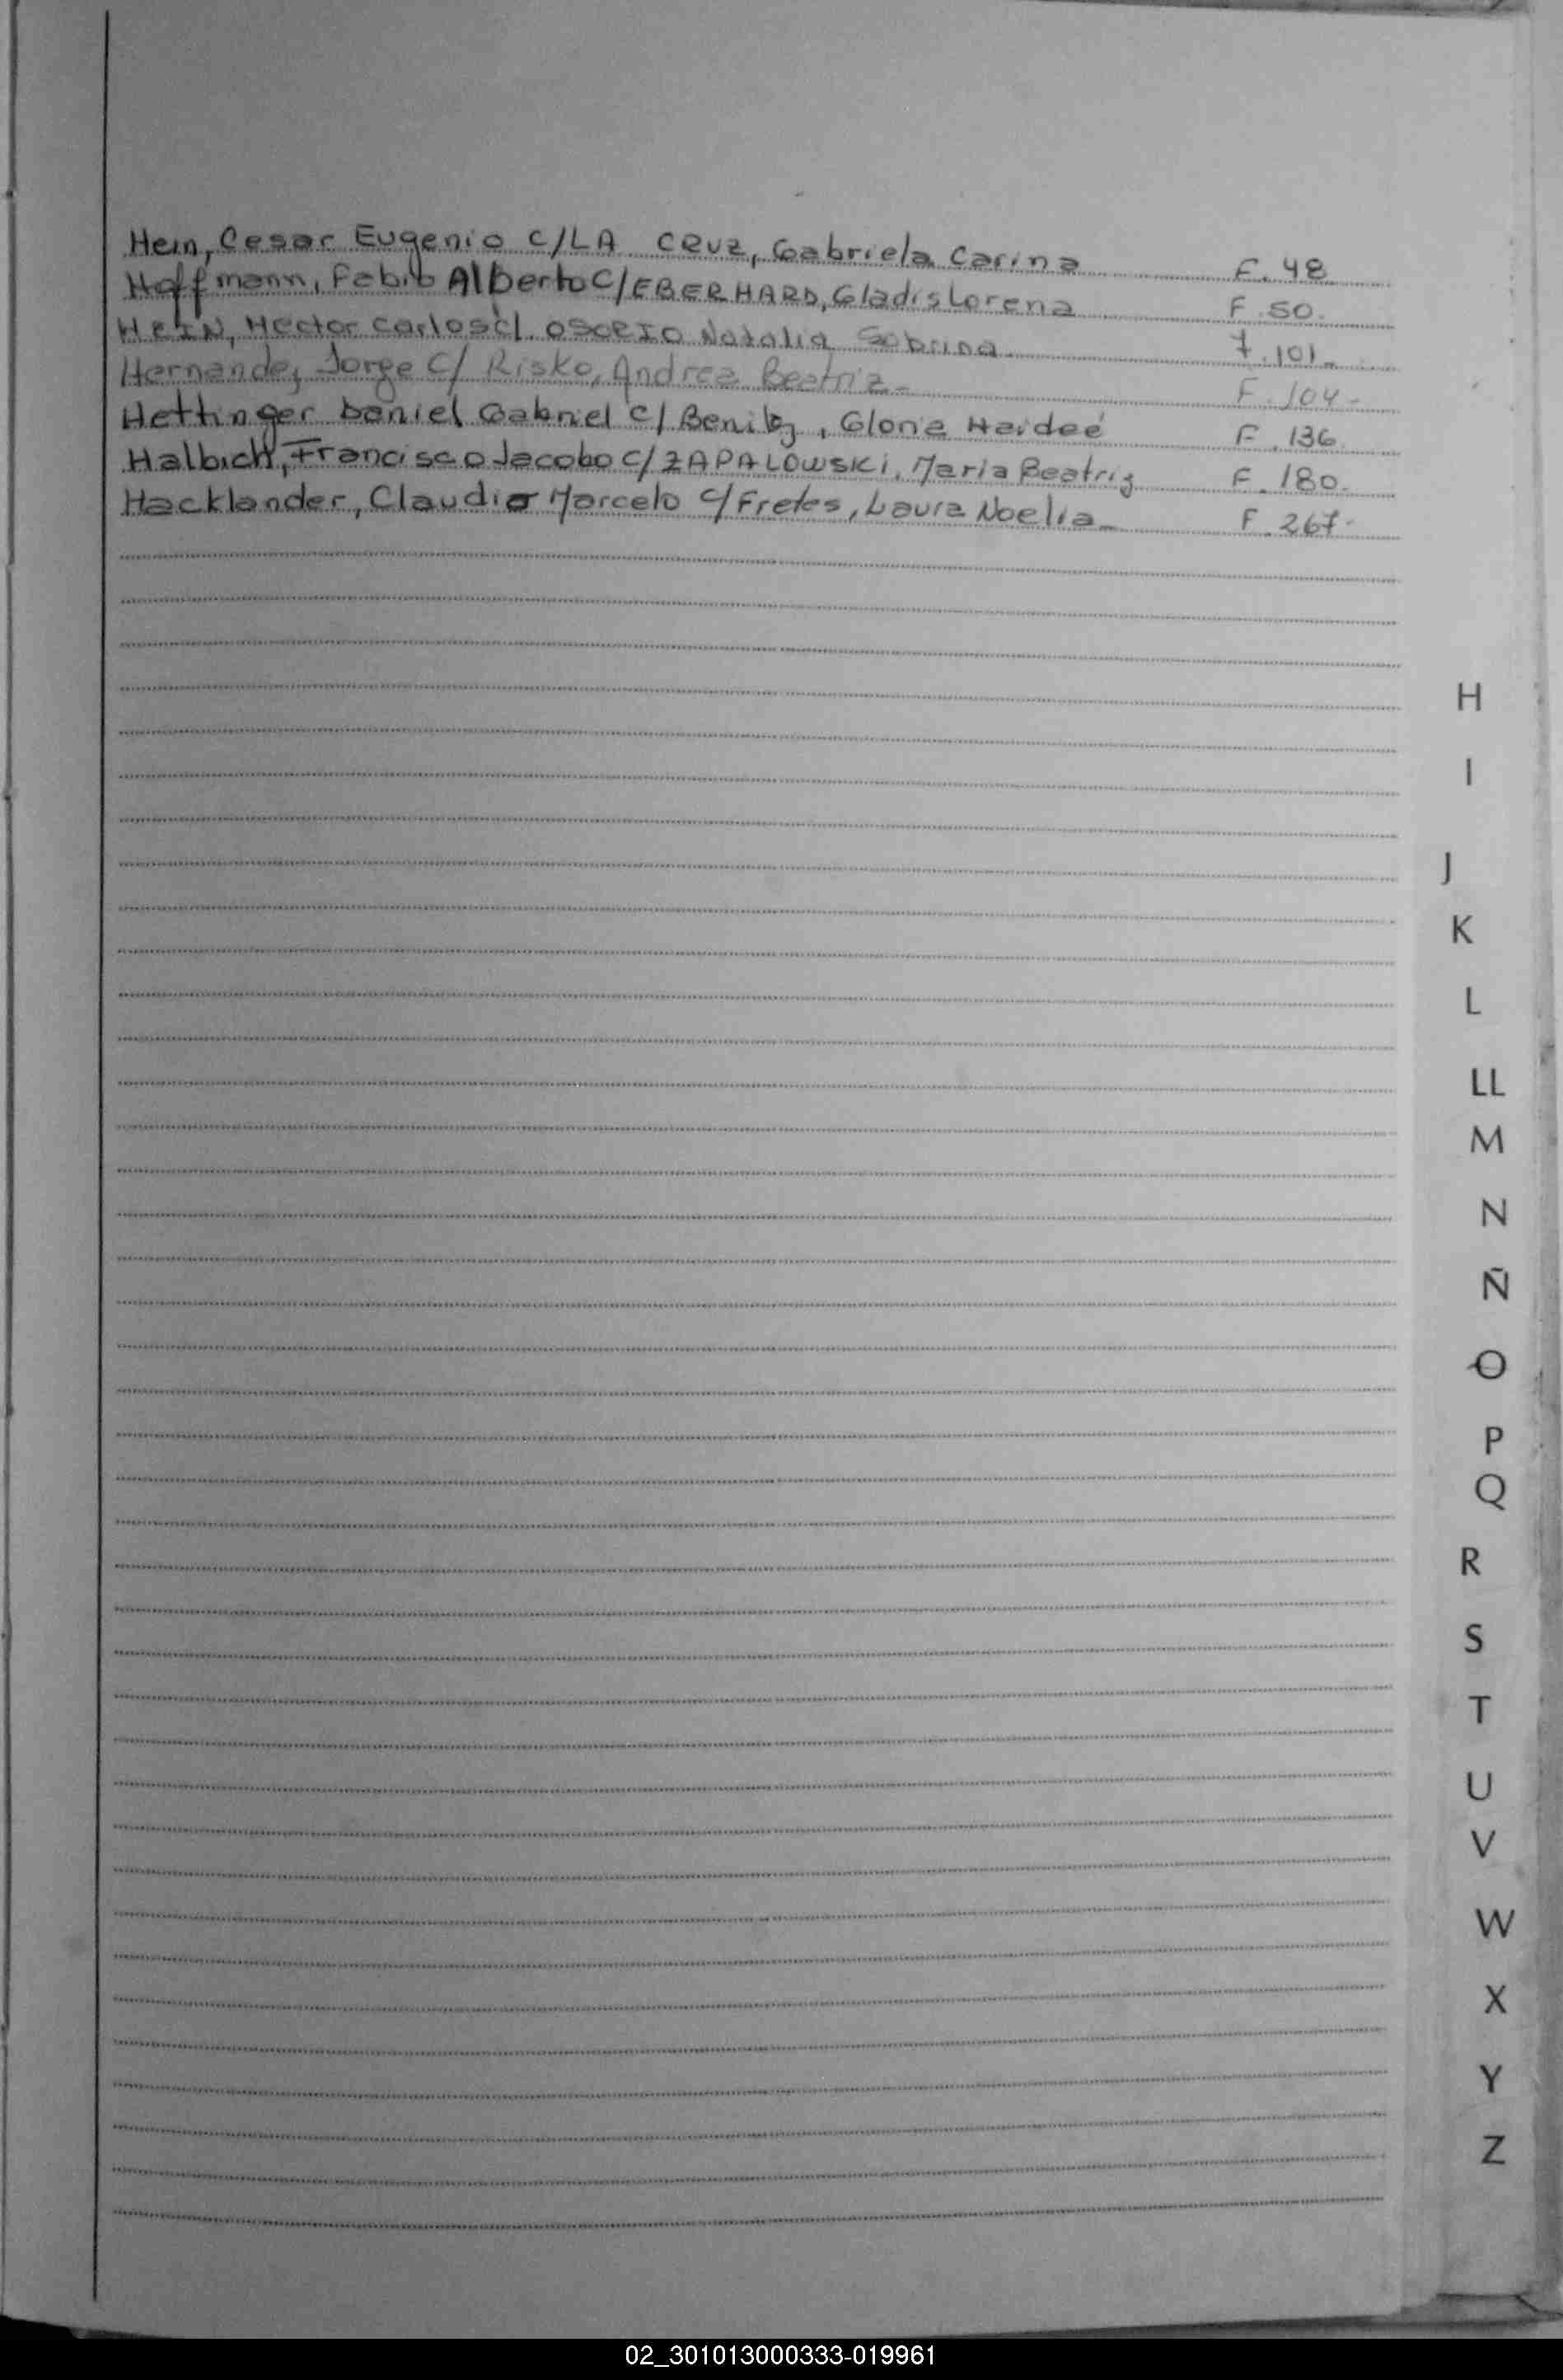 Hein, Cesar Eugenio C/LA CRUZ, Gabriela Carina F. 48
Hoffmann, Fabio Alberto C/EBERHARD, Gladis Lorena F. 50.
HEIN, Hector Carlos c/. OSORIO Natalia Sabrina F. 101-
Hernandez Jorge C/ Risko, Andrea Beatriz- F. 104-
Hettinger Daniel Gabriel c/ Benitez, Gloria Haideé F. 136
Halbich, Francisco Jacobo c/ ZAPALOWSKI, Maria Beatriz F. 180.
Hacklander, Claudio Marcelo c/ Fretes, Laura Noelia- F. 267-
H
I
J
K
L
LL
M
N
Ñ
O
P
Q
R
S
T
U
V
W
X
Y
Z
02_301013000333-019961